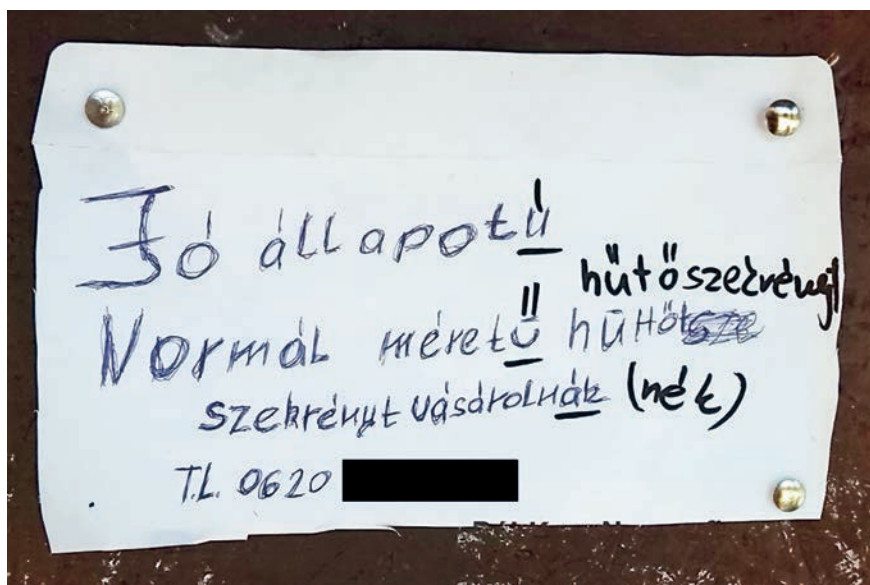 Jó állapotú
hűtőszekrényt
Normál méretű
szekrényt vásárolnák (nék)
T.L. 0620